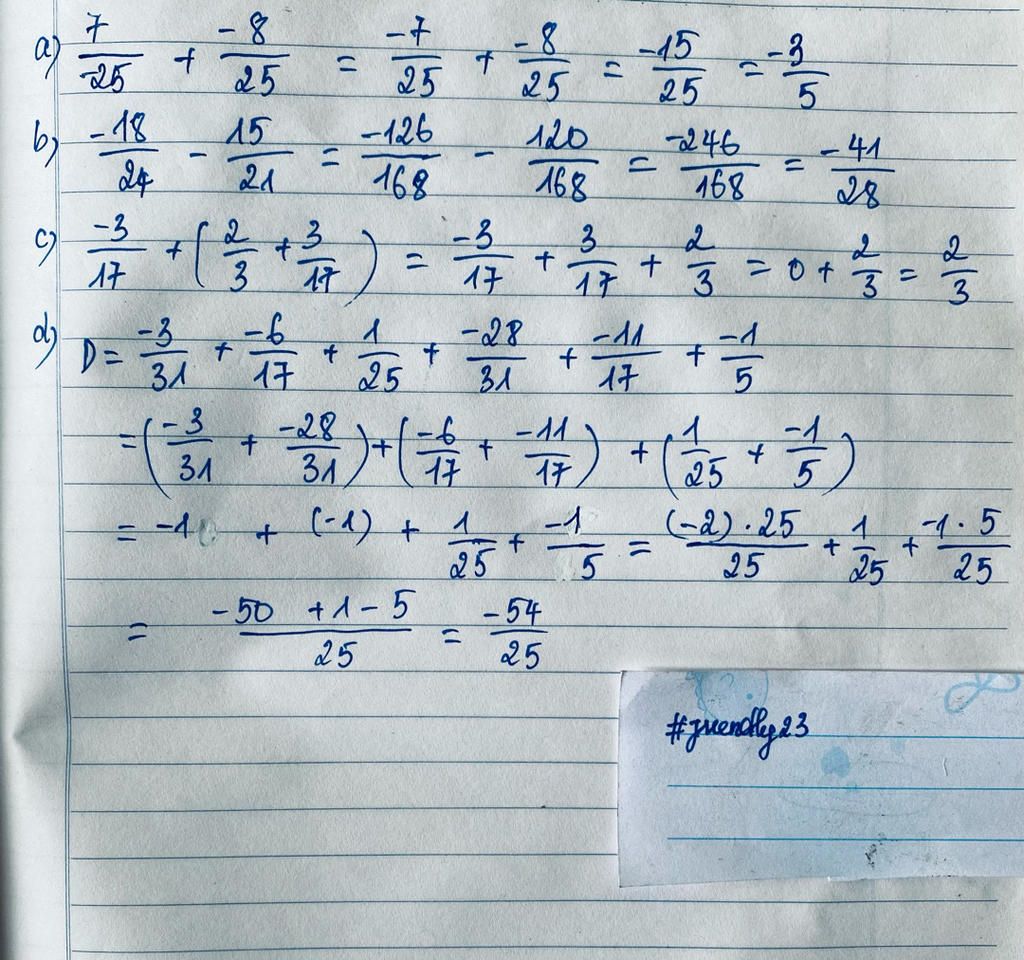 a) 7/-25 + -8/25 = -7/25 + -8/25 = -15/25 = -3/5
b) -18/24 - 15/21 = -126/168 - 120/168 = -246/168 = -41/28
c) -3/17 + (2/3 + 3/17) = -3/17 + 3/17 + 2/3 = 0 + 2/3 = 2/3
d) D = -3/31 + -6/17 + 1/25 + -28/31 + -11/17 + -1/5
= (-3/31 + -28/31) + (-6/17 + -11/17) + (1/25 + -1/5)
= -1 + (-1) + 1/25 + -1/5 = (-2).25/25 + 1/25 + -1.5/25
= -50 + 1 - 5/25 = -54/25